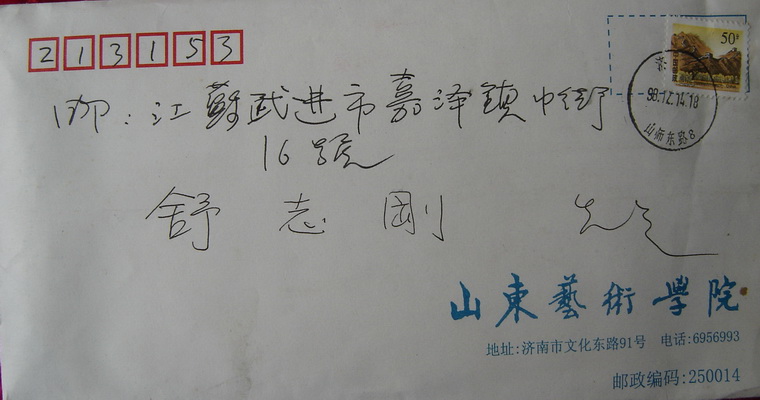 213153
50分
邮：江蘇武进市嘉泽鎮中街
16號
98.12.14.18
山师东路8
舒志剛 先生
山東藝術學院
地址:济南市文化东路91号 电话:6956993
邮政编码:250014